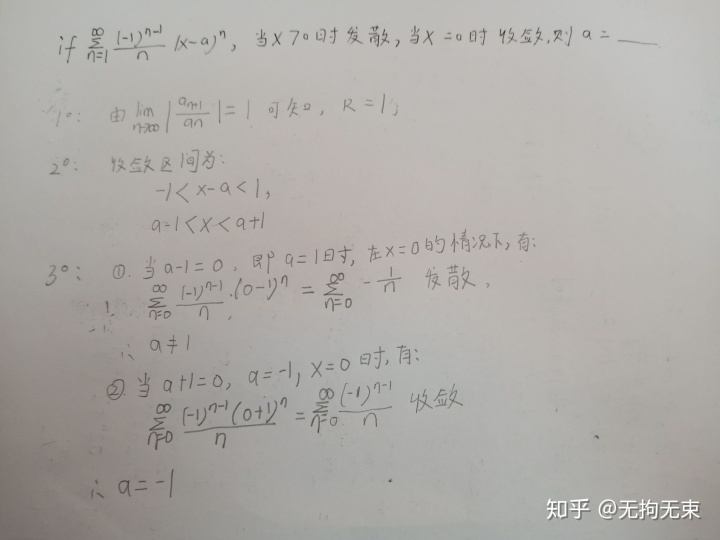 if ∑_{n=1}^{∞} (-1)^{n-1}/n (x-a)^n, 当x>0时发散, 当x=0时收敛,则 a = ____
1°: 由 lim_{n→∞} |a_{n+1}/a_n| = 1 可知, R = 1;
2°: 收敛区间为:
-1 < x-a < 1,
a-1 < x < a+1
3°: ①. 当 a-1=0, 即 a=1时, 在x=0的情况下, 有:
∑_{n=0}^{∞} (-1)^{n-1}/n · (0-1)^n = ∑_{n=0}^{∞} -1/n 发散.
∴ a≠1
②. 当 a+1=0, a=-1, x=0 时, 有:
∑_{n=0}^{∞} (-1)^{n-1}(0+1)^n/n = ∑_{n=0}^{∞} (-1)^{n-1}/n 收敛
∴ a=-1
知乎 @无拘无束